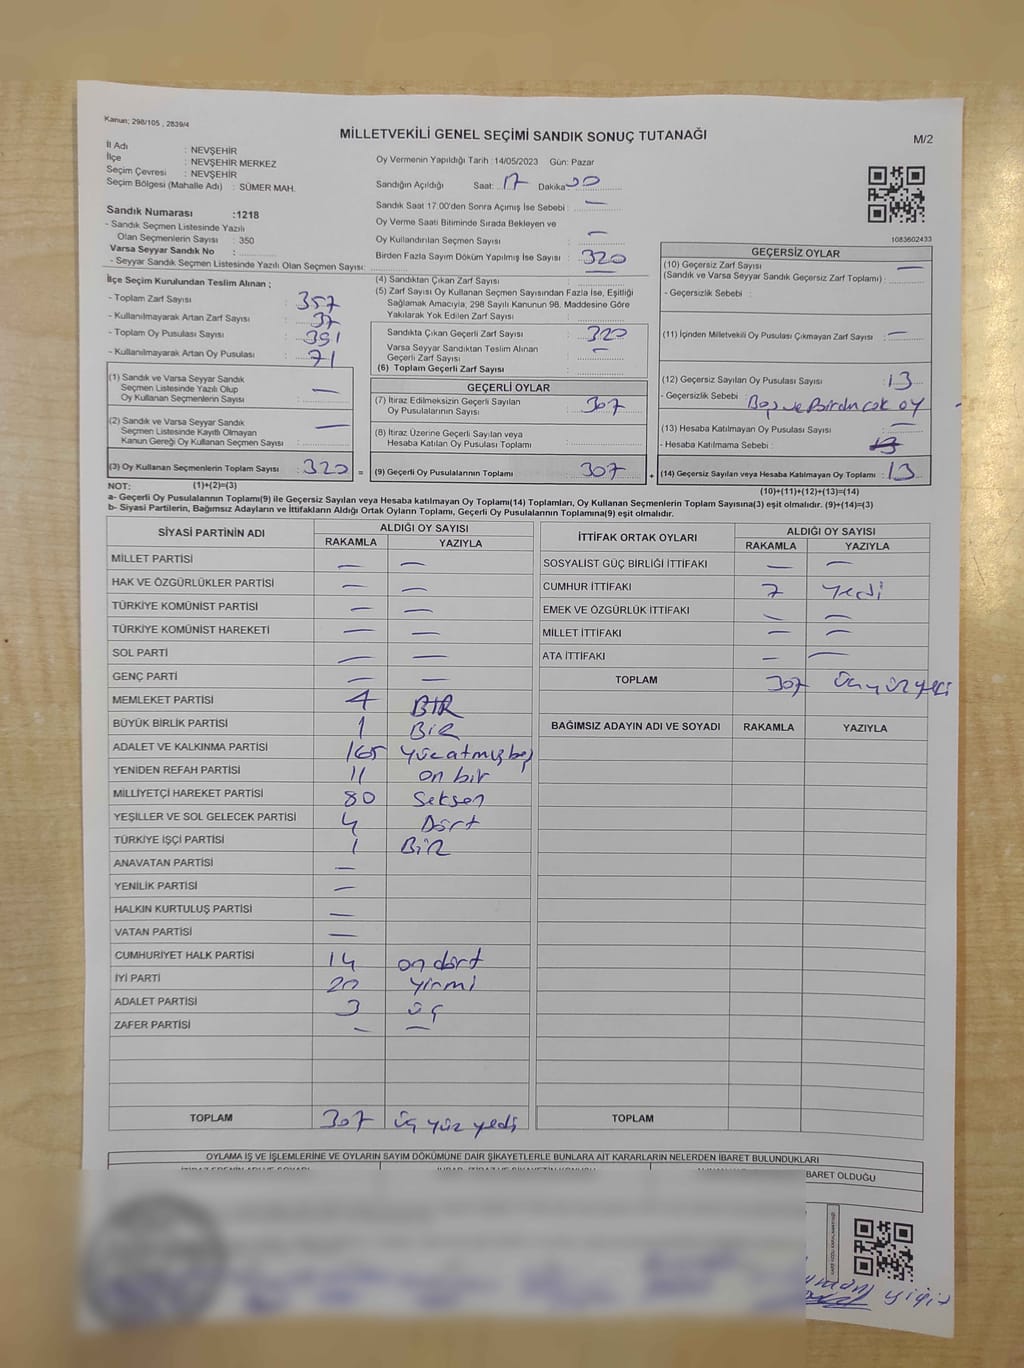 Kanun; 298/105 , 2839/4
MİLLETVEKİLİ GENEL SEÇİMİ SANDIK SONUÇ TUTANAĞI
M/2
İl Adı : NEVŞEHİR
İlçe : NEVŞEHİR MERKEZ
Seçim Çevresi : NEVŞEHİR
Seçim Bölgesi (Mahalle Adı) : SÜMER MAH.
Sandık Numarası :1218
- Sandık Seçmen Listesinde Yazılı
Olan Seçmenlerin Sayısı : 350
Varsa Seyyar Sandık No :
- Seyyar Sandık Seçmen Listesinde Yazılı Olan Seçmen Sayısı:
Oy Vermenin Yapıldığı Tarih :14/05/2023 Gün: Pazar
Sandığın Açıldığı Saat: 17 Dakika 00
Sandık Saat 17.00'den Sonra Açımış İse Sebebi : —
Oy Verme Saati Bitiminde Sırada Bekleyen ve
Oy Kullandırılan Seçmen Sayısı : —
Birden Fazla Sayım Döküm Yapılmış İse Sayısı : 320
1083602433
İlçe Seçim Kurulundan Teslim Alınan ;
- Toplam Zarf Sayısı : 357
- Kullanılmayarak Artan Zarf Sayısı : 37
- Toplam Oy Pusulası Sayısı : 391
- Kullanılmayarak Artan Oy Pusulası : 71
(1) Sandık ve Varsa Seyyar Sandık
Seçmen Listesinde Yazılı Olup
Oy Kullanan Seçmenlerin Sayısı : —
(2) Sandık ve Varsa Seyyar Sandık
Seçmen Listesinde Kayıtlı Olmayan
Kanun Gereği Oy Kullanan Seçmen Sayısı : —
(3) Oy Kullanan Seçmenlerin Toplam Sayısı : 320 =
(4) Sandıktan Çıkan Zarf Sayısı : —
(5) Zarf Sayısı Oy Kullanan Seçmen Sayısından Fazla İse, Eşitliği
Sağlamak Amacıyla, 298 Sayılı Kanunun 98. Maddesine Göre
Yakılarak Yok Edilen Zarf Sayısı :
Sandıkta Çıkan Geçerli Zarf Sayısı : 320
Varsa Seyyar Sandıktan Teslim Alınan
Geçerli Zarf Sayısı : —
(6) Toplam Geçerli Zarf Sayısı :
GEÇERLİ OYLAR
(7) İtiraz Edilmeksizin Geçerli Sayılan
Oy Pusulalarının Sayısı : 307
(8) İtiraz Üzerine Geçerli Sayılan veya
Hesaba Katılan Oy Pusulası Toplamı :
(9) Geçerli Oy Pusulalarının Toplamı : 307 +
GEÇERSİZ OYLAR
(10) Geçersiz Zarf Sayısı : —
(Sandık ve Varsa Seyyar Sandık Geçersiz Zarf Toplamı) :
- Geçersizlik Sebebi :
(11) İçinden Milletvekili Oy Pusulası Çıkmayan Zarf Sayısı : —
(12) Geçersiz Sayılan Oy Pusulası Sayısı : 13
- Geçersizlik Sebebi Boş ve Birden çok oy
(13) Hesaba Katılmayan Oy Pusulası Sayısı : —
- Hesaba Katılmama Sebebi : 13
(14) Geçersiz Sayılan veya Hesaba Katılmayan Oy Toplamı : 13
NOT: (1)+(2)=(3)
(10)+(11)+(12)+(13)=(14)
a- Geçerli Oy Pusulalarının Toplamı(9) ile Geçersiz Sayılan veya Hesaba katılmayan Oy Toplamı(14) Toplamları, Oy Kullanan Seçmenlerin Toplam Sayısına(3) eşit olmalıdır. (9)+(14)=(3)
b- Siyasi Partilerin, Bağımsız Adayların ve İttifakların Aldığı Ortak Oyların Toplamı, Geçerli Oy Pusulalarının Toplamına(9) eşit olmalıdır.
SİYASİ PARTİNİN ADI ALDIĞI OY SAYISI
RAKAMLA YAZIYLA
MİLLET PARTİSİ — —
HAK VE ÖZGÜRLÜKLER PARTİSİ — —
TÜRKİYE KOMÜNİST PARTİSİ — —
TÜRKİYE KOMÜNİST HAREKETİ — —
SOL PARTİ — —
GENÇ PARTİ — —
MEMLEKET PARTİSİ 4 BİR
BÜYÜK BİRLİK PARTİSİ 1 BİR
ADALET VE KALKINMA PARTİSİ 165 yüzatmışbeş
YENİDEN REFAH PARTİSİ 11 on bir
MİLLİYETÇİ HAREKET PARTİSİ 80 Seksen
YEŞİLLER VE SOL GELECEK PARTİSİ 4 Dört
TÜRKİYE İŞÇİ PARTİSİ 1 BİR
ANAVATAN PARTİSİ —
YENİLİK PARTİSİ —
HALKIN KURTULUŞ PARTİSİ —
VATAN PARTİSİ —
CUMHURİYET HALK PARTİSİ 14 on dört
İYİ PARTİ 20 yirmi
ADALET PARTİSİ 3 üç
ZAFER PARTİSİ — —
TOPLAM 307 üç yüz yedi
İTTİFAK ORTAK OYLARI ALDIĞI OY SAYISI
RAKAMLA YAZIYLA
SOSYALİST GÜÇ BİRLİĞİ İTTİFAKI — —
CUMHUR İTTİFAKI 7 yedi
EMEK VE ÖZGÜRLÜK İTTİFAKI — —
MİLLET İTTİFAKI — —
ATA İTTİFAKI — —
TOPLAM 307 üçyüzyedi
BAĞIMSIZ ADAYIN ADI VE SOYADI RAKAMLA YAZIYLA
TOPLAM
OYLAMA İŞ VE İŞLEMLERİNE VE OYLARIN SAYIM DÖKÜMÜNE DAİR ŞİKAYETLERLE BUNLARA AİT KARARLARIN NELERDEN İBARET BULUNDUKLARI
BARET OLDUĞU
yiğit